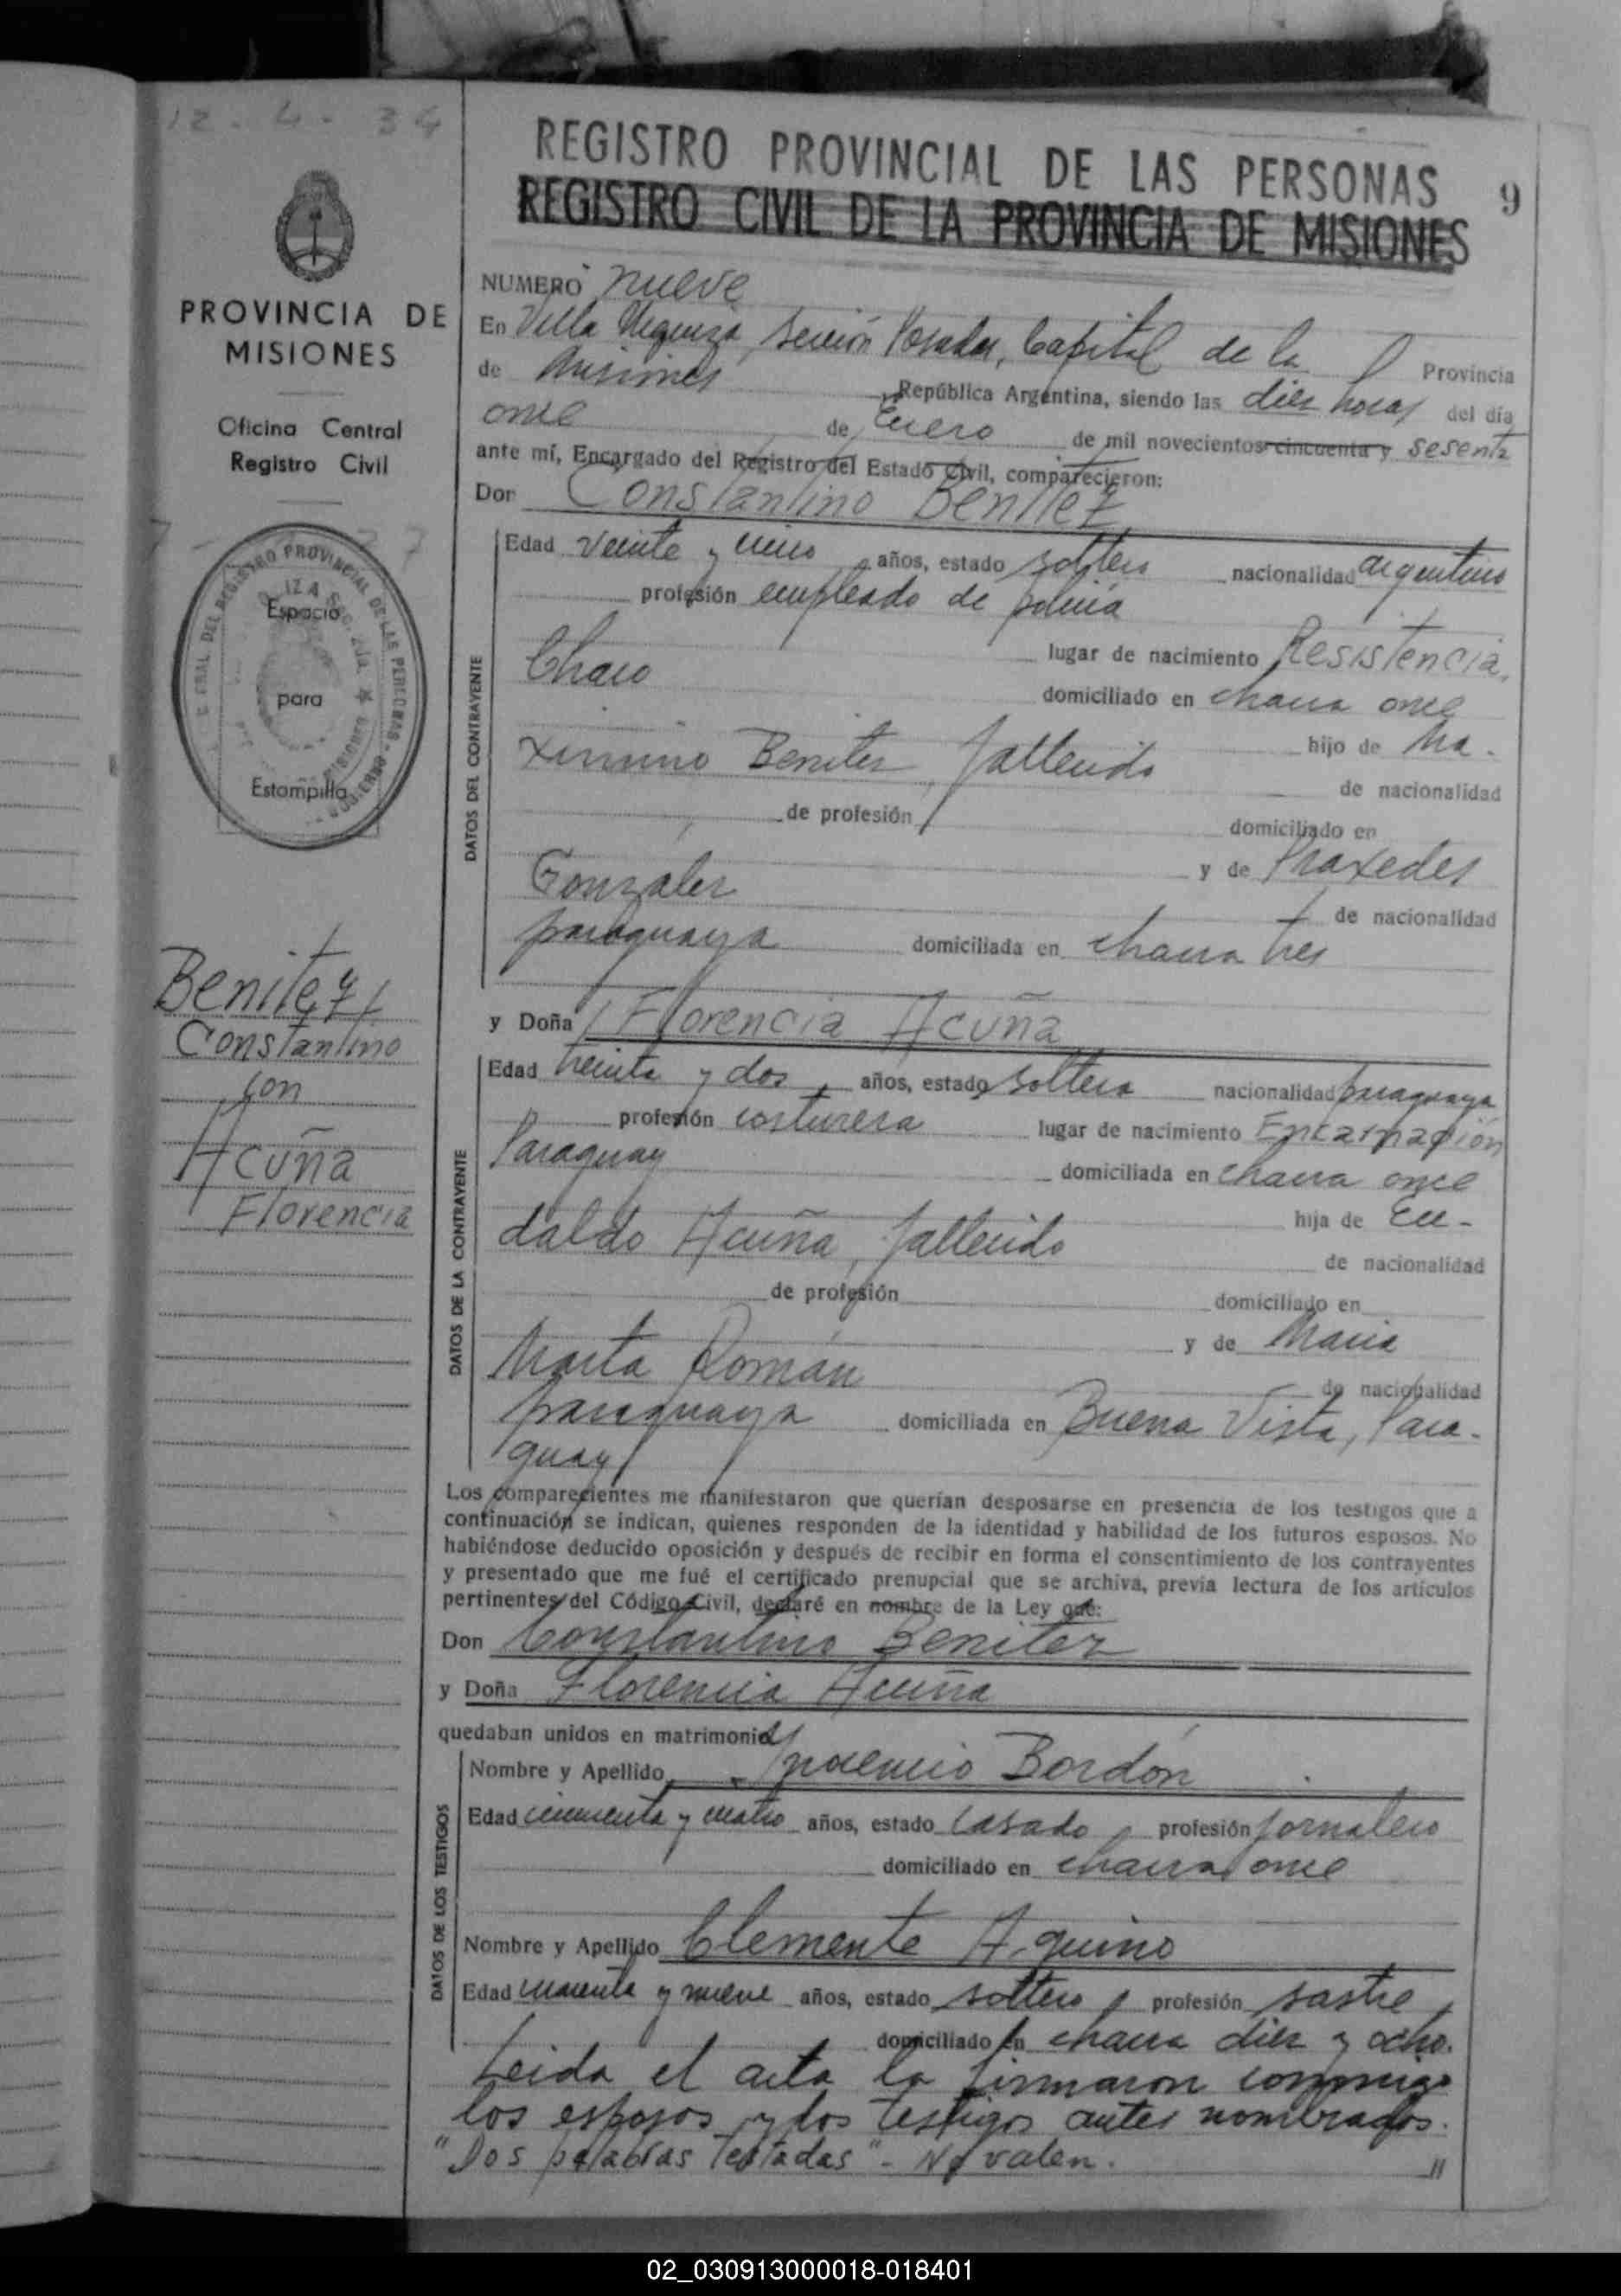 12 - 4 - 34
REGISTRO PROVINCIAL DE LAS PERSONAS
9
REGISTRO CIVIL DE LA PROVINCIA DE MISIONES
PROVINCIA DE
MISIONES
Oficina Central
Registro Civil
Espacio
para
Estampilla
Benitez
Constantino
con
Acuña
Florencia
NUMERO nueve
En Villa Urquiza, Sección Posadas, Capital de la Provincia
de Misiones República Argentina, siendo las diez horas del día
once de Enero de mil novecientos cincuenta y sesenta
ante mí, Encargado del Registro del Estado Civil, comparecieron:
Don Constantino Benitez
DATOS DEL CONTRAYENTE
Edad veinte y cinco años, estado soltero nacionalidad argentino
profesión empleado de policia
lugar de nacimiento Resistencia,
Chaco domiciliado en chacra once
hijo de Ma-
ximino Benitez, fallecido de nacionalidad
de profesión domiciliado en
y de Praxedes
Gonzalez de nacionalidad
paraguaya domiciliada en chacra tres
y Doña Florencia Acuña
DATOS DE LA CONTRAYENTE
Edad treinta y dos, años, estado soltera nacionalidad paraguaya
profesión costurera lugar de nacimiento Encarnación
Paraguay domiciliada en chacra once
hija de Eu-
daldo Acuña, fallecido de nacionalidad
de profesión domiciliado en
y de Maria
Marta Román de nacionalidad
paraguaya domiciliada en Buena Vista, Para-
guay
Los comparecientes me manifestaron que querían desposarse en presencia de los testigos que a
continuación se indican, quienes responden de la identidad y habilidad de los futuros esposos. No
habiéndose deducido oposición y después de recibir en forma el consentimiento de los contrayentes
y presentado que me fué el certificado prenupcial que se archiva, previa lectura de los artículos
pertinentes del Código Civil, declaré en nombre de la Ley que:
Don Constantino Benitez
y Doña Florencia Acuña
quedaban unidos en matrimonio
DATOS DE LOS TESTIGOS
Nombre y Apellido Bordón
Edad cincuenta y cuatro años, estado casado, profesión jornalero
domiciliado en chacra once
Nombre y Apellido Clemente Aquino
Edad cuarenta y nueve años, estado soltero, profesión sastre,
domiciliado en chacra diez y ocho.
Leida el acta la firmaron conmigo
los esposos y los testigos antes nombrados.
"Dos palabras testadas" - No valen.
02_030913000018-018401